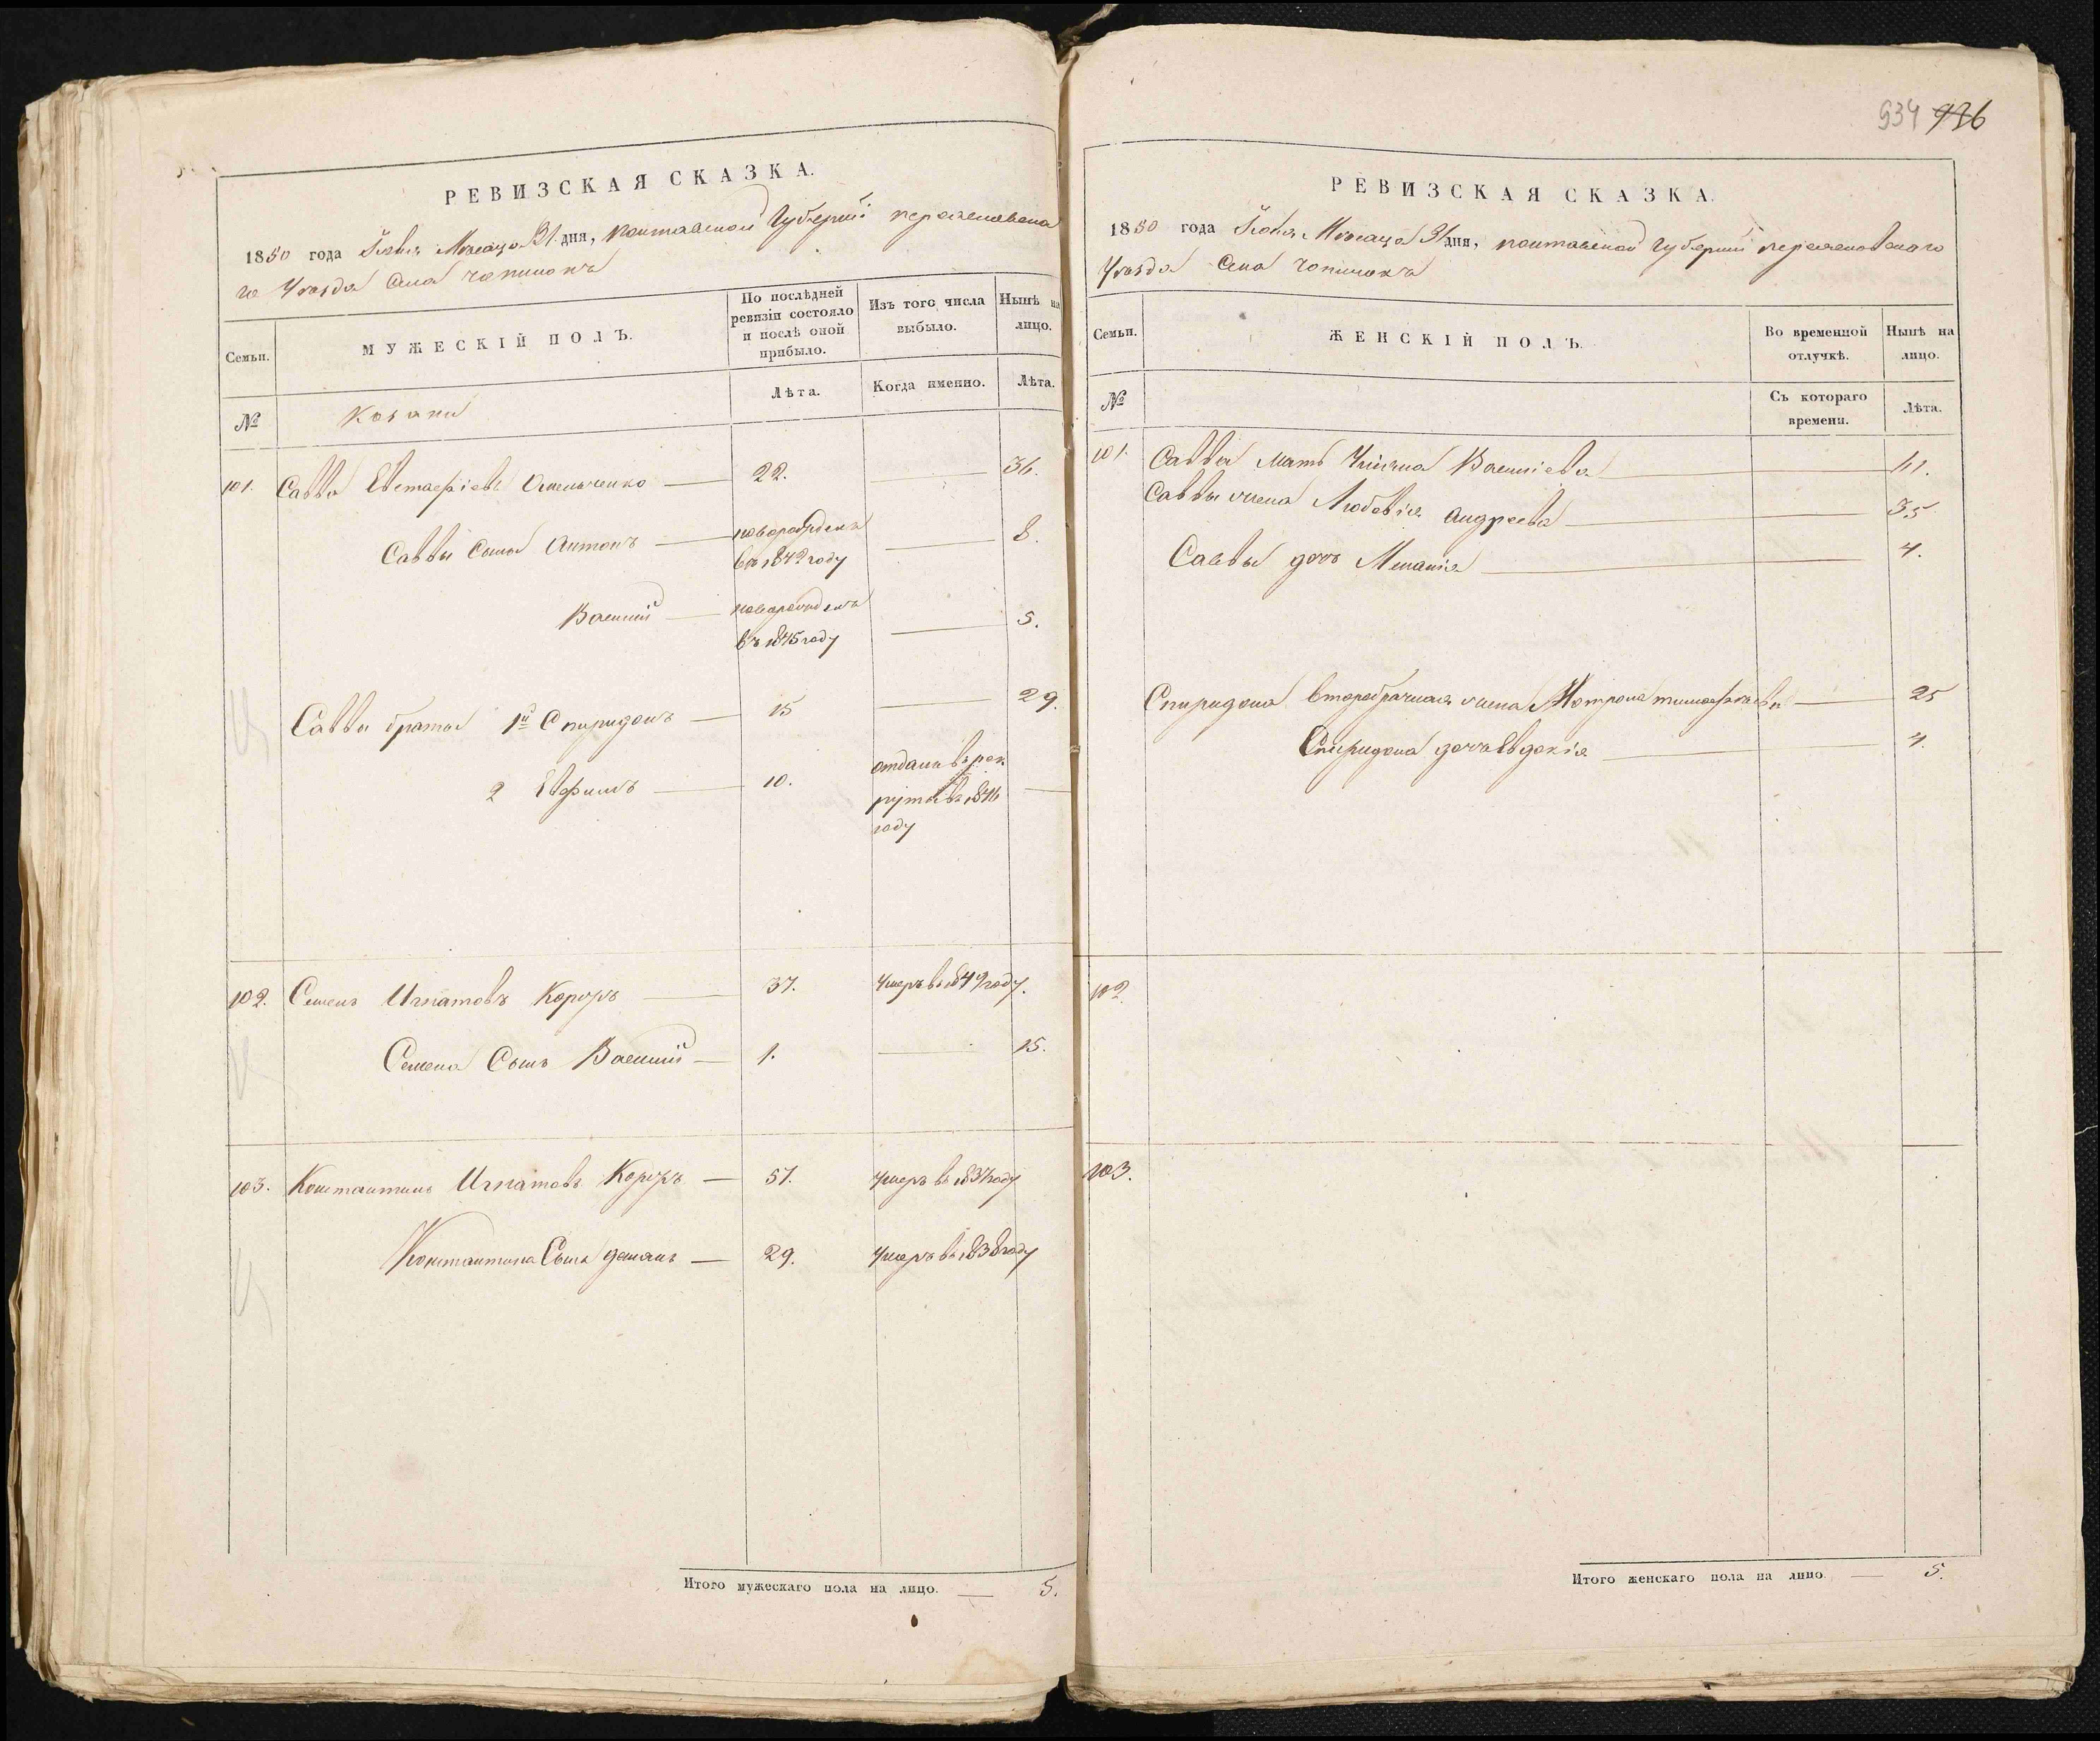 РЕВИЗСКАЯ СКАЗКА.
1850 года Іюля Месяца 31 дня, полтавской Губерніи переяславска
го Уезда Села
Семьи.
МУЖЕСКІЙ ПОЛЪ.
По послѣдней ревизіи состояло и послѣ оной прибыло.
Изъ того числа выбыло.
Нынѣ на лицо.
Лѣта.
Когда именно.
Лѣта.
№
Козаки
101. Савва Евстафіевъ Омельченко — 22. — 36.
Саввы Сыны Антонъ — новорожденъ въ 1842 году — 8.
Василій — новорожденъ въ 1845 году — 5.
Саввы братья 1й Спиридонъ — 15 — 29.
2 Евфимъ — 10. отданъ въ рек
руты въ 1846
году —
102. Семенъ Игнатовъ Корсунъ — 37. Умеръ въ 1849 году.
Семена Сынъ Василій — 1. — 15.
103. Константинъ Игнатовъ — 57. Умеръ въ 1837 году
Константина Сынъ Демянъ — 29. Умеръ въ 1838 году
Итого мужескаго пола на лицо. — 5.
934 936
РЕВИЗСКАЯ СКАЗКА.
1850 года Іюля Месяца 31 дня, полтавской Губерніи
Уезда Села
Семьи.
ЖЕНСКІЙ ПОЛЪ.
Во временной отлучкѣ.
Нынѣ на лицо.
№
Съ котораго времени.
Лѣта.
101. Саввы мать Ульяна Васильева —
Саввы жена Любовія Андреева — 35
Саввы дочь Меланія — 4.
Спиридона второбрачная жена Мотрона Тимофеева — 25
Спиридона дочь Евдокія — 4.
102.
103.
Итого женскаго пола на лицо. — 5.